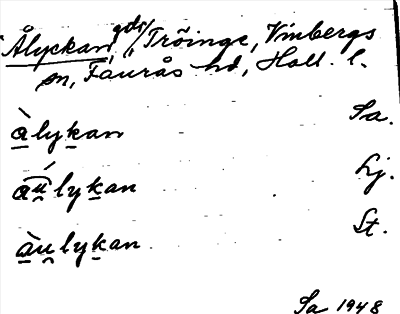 Ålyckan, gdr/ i Tröinge, Vinbergs
sn, Faurås hd, Hall. l.
àlykan Sa.
aúlykan Lj.
àulykan St.
Sa 1948